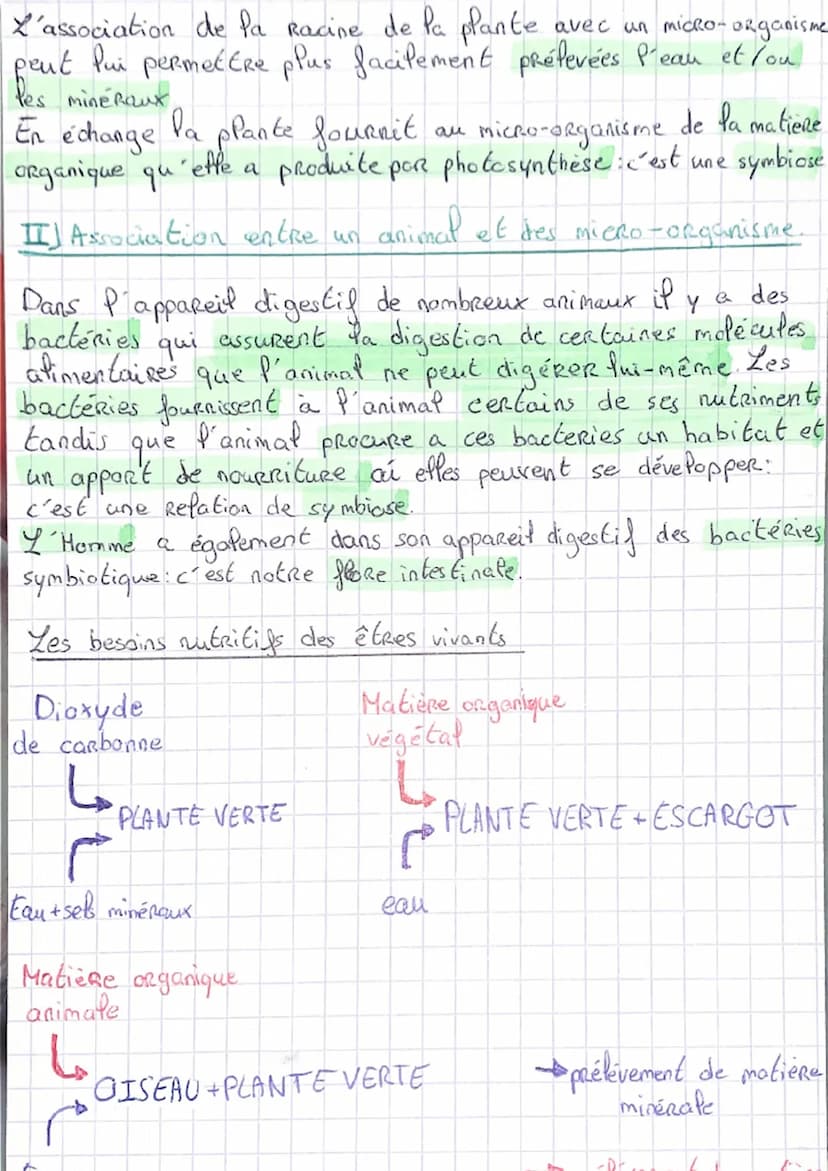 L'association de la racine de la plante avec un micro-organisme
peut lui permettre plus facilement prélevées l'eau et/ou
les minéraux
En échange la plante fournit au micro-organisme de la matière
organique qu'elle a produite par photosynthèse : c'est une symbiose
II) Association entre un animal et des micro-organisme.
Dans l'appareil digestif de nombreux animaux il y a des
bactéries qui assurent la digestion de certaines molécules
alimentaires que l'animal ne peut digérer lui-même. Les
bactéries fournissent à l'animal certains de ses nutriments
tandis que l'animal procure a ces bacteries un habitat et
un apport de nourriture où elles peuvent se développer :
c'est une relation de symbiose.
L'Homme a également dans son appareil digestif des bactéries
symbiotique : c'est notre flore intestinale.
Les besoins nutritifs des êtres vivants
Dioxyde
de carbonne
PLANTE VERTE
Eau + sels minéraux
Matière organique
végétal
PLANTE VERTE + ESCARGOT
eau
Matière organique
animale
OISEAU + PLANTE VERTE
→ prélèvement de matière
minérale